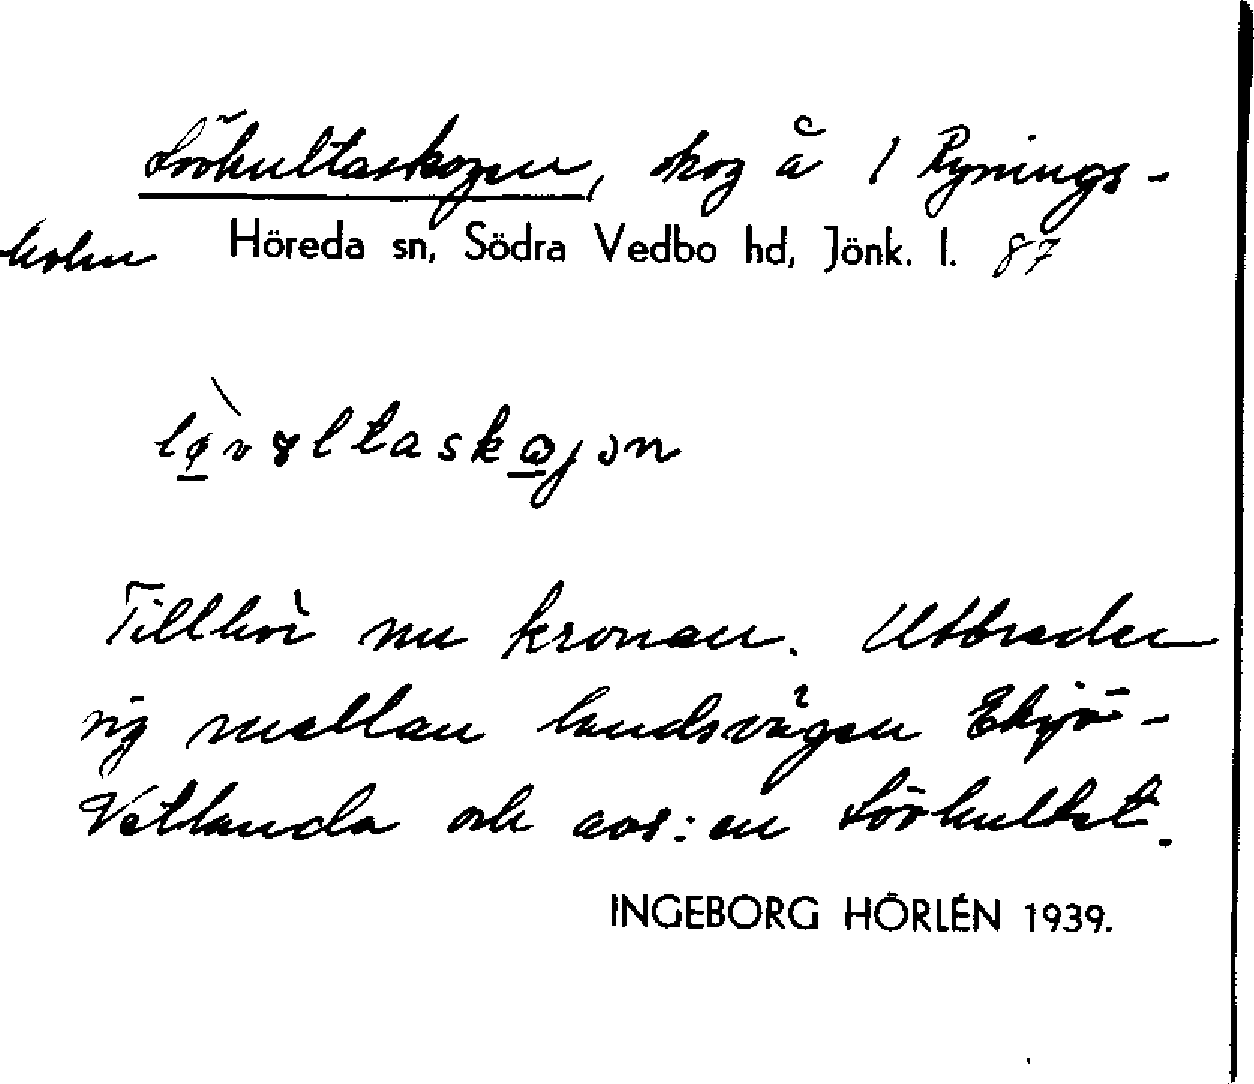 Lövhultaskogen, skog å 1 Rynings-
holm Höreda sn, Södra Vedbo hd, Jönk. l. 87
Tillhör nu kronan. Utbreder
sig mellan landsvägen Eksjö-
Vetlanda och avs:en Lövhultet.
INGEBORG HÖRLÉN 1939.